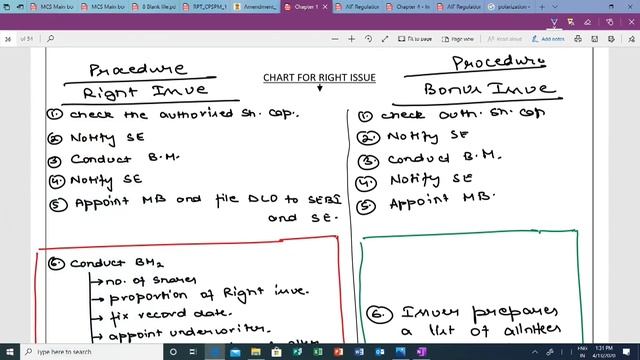 MCS Main bo
MCS Main bo
8 Blank file.pd
RPT_OPSPM_1
Amendment_
Chapter 1
AIF Regulation
Chapter 4 - In
AIF Regulation
polarization -
36 of 54
Fit to page
Page view
Read aloud
Add notes
CHART FOR RIGHT ISSUE
Procedure
Right Issue
① check the authorised sh. cap.
② Notify SE
③ Conduct B.M.
④ Notify SE
⑤ Appoint MB and file DLO to SEBI
and SE.
⑥ Conduct BM2
→ no. of shares
→ proportion of Right issue.
→ fix record date.
→ appoint underwriter.
Procedure
Bonus Issue
① check auth. sh. cap
② Notify SE
③ Conduct B.M.
④ Notify SE
⑤ Appoint MB.
⑥ Issuer prepares
a list of allottees
Type here to search
ENG
IN
1:31 PM
4/12/2020